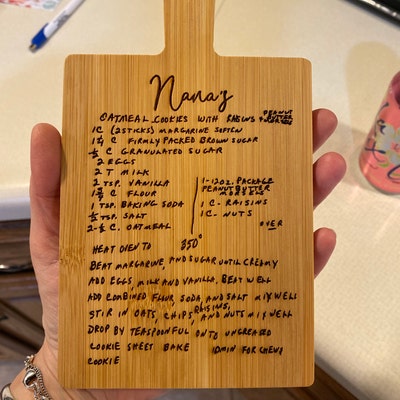 Nana's
OATMEAL COOKIES WITH RAISINS PEANUT BUTTER MORSELS
1C (2 STICKS) MARGARINE SOFTEN
1 1/4 C FIRMLY PACKED BROWN SUGAR
1/2 C GRANULATED SUGAR
2 EGGS
2 T MILK
2 TSP. VANILLA
C FLOUR
1 TSP. BAKING SODA
1/2 TSP. SALT
2-1/2 C. OATMEAL
1-12OZ. PACKAGE
PEANUT BUTTER
MORSELS
1C- RAISINS
1C- NUTS
OVER
HEAT OVEN TO 350°
BEAT MARGARINE, AND SUGAR UNTIL CREAMY
ADD EGGS, MILK AND VANILLA. BEAT WELL
ADD COMBINED FLOUR, SODA, AND SALT MIX WELL
STIR IN OATS, CHIPS, RAISINS, AND NUTS MIX WELL
DROP BY TEASPOONFUL ONTO UNGREASED
COOKIE SHEET BAKE 10MIN FOR CHEWY
COOKIE